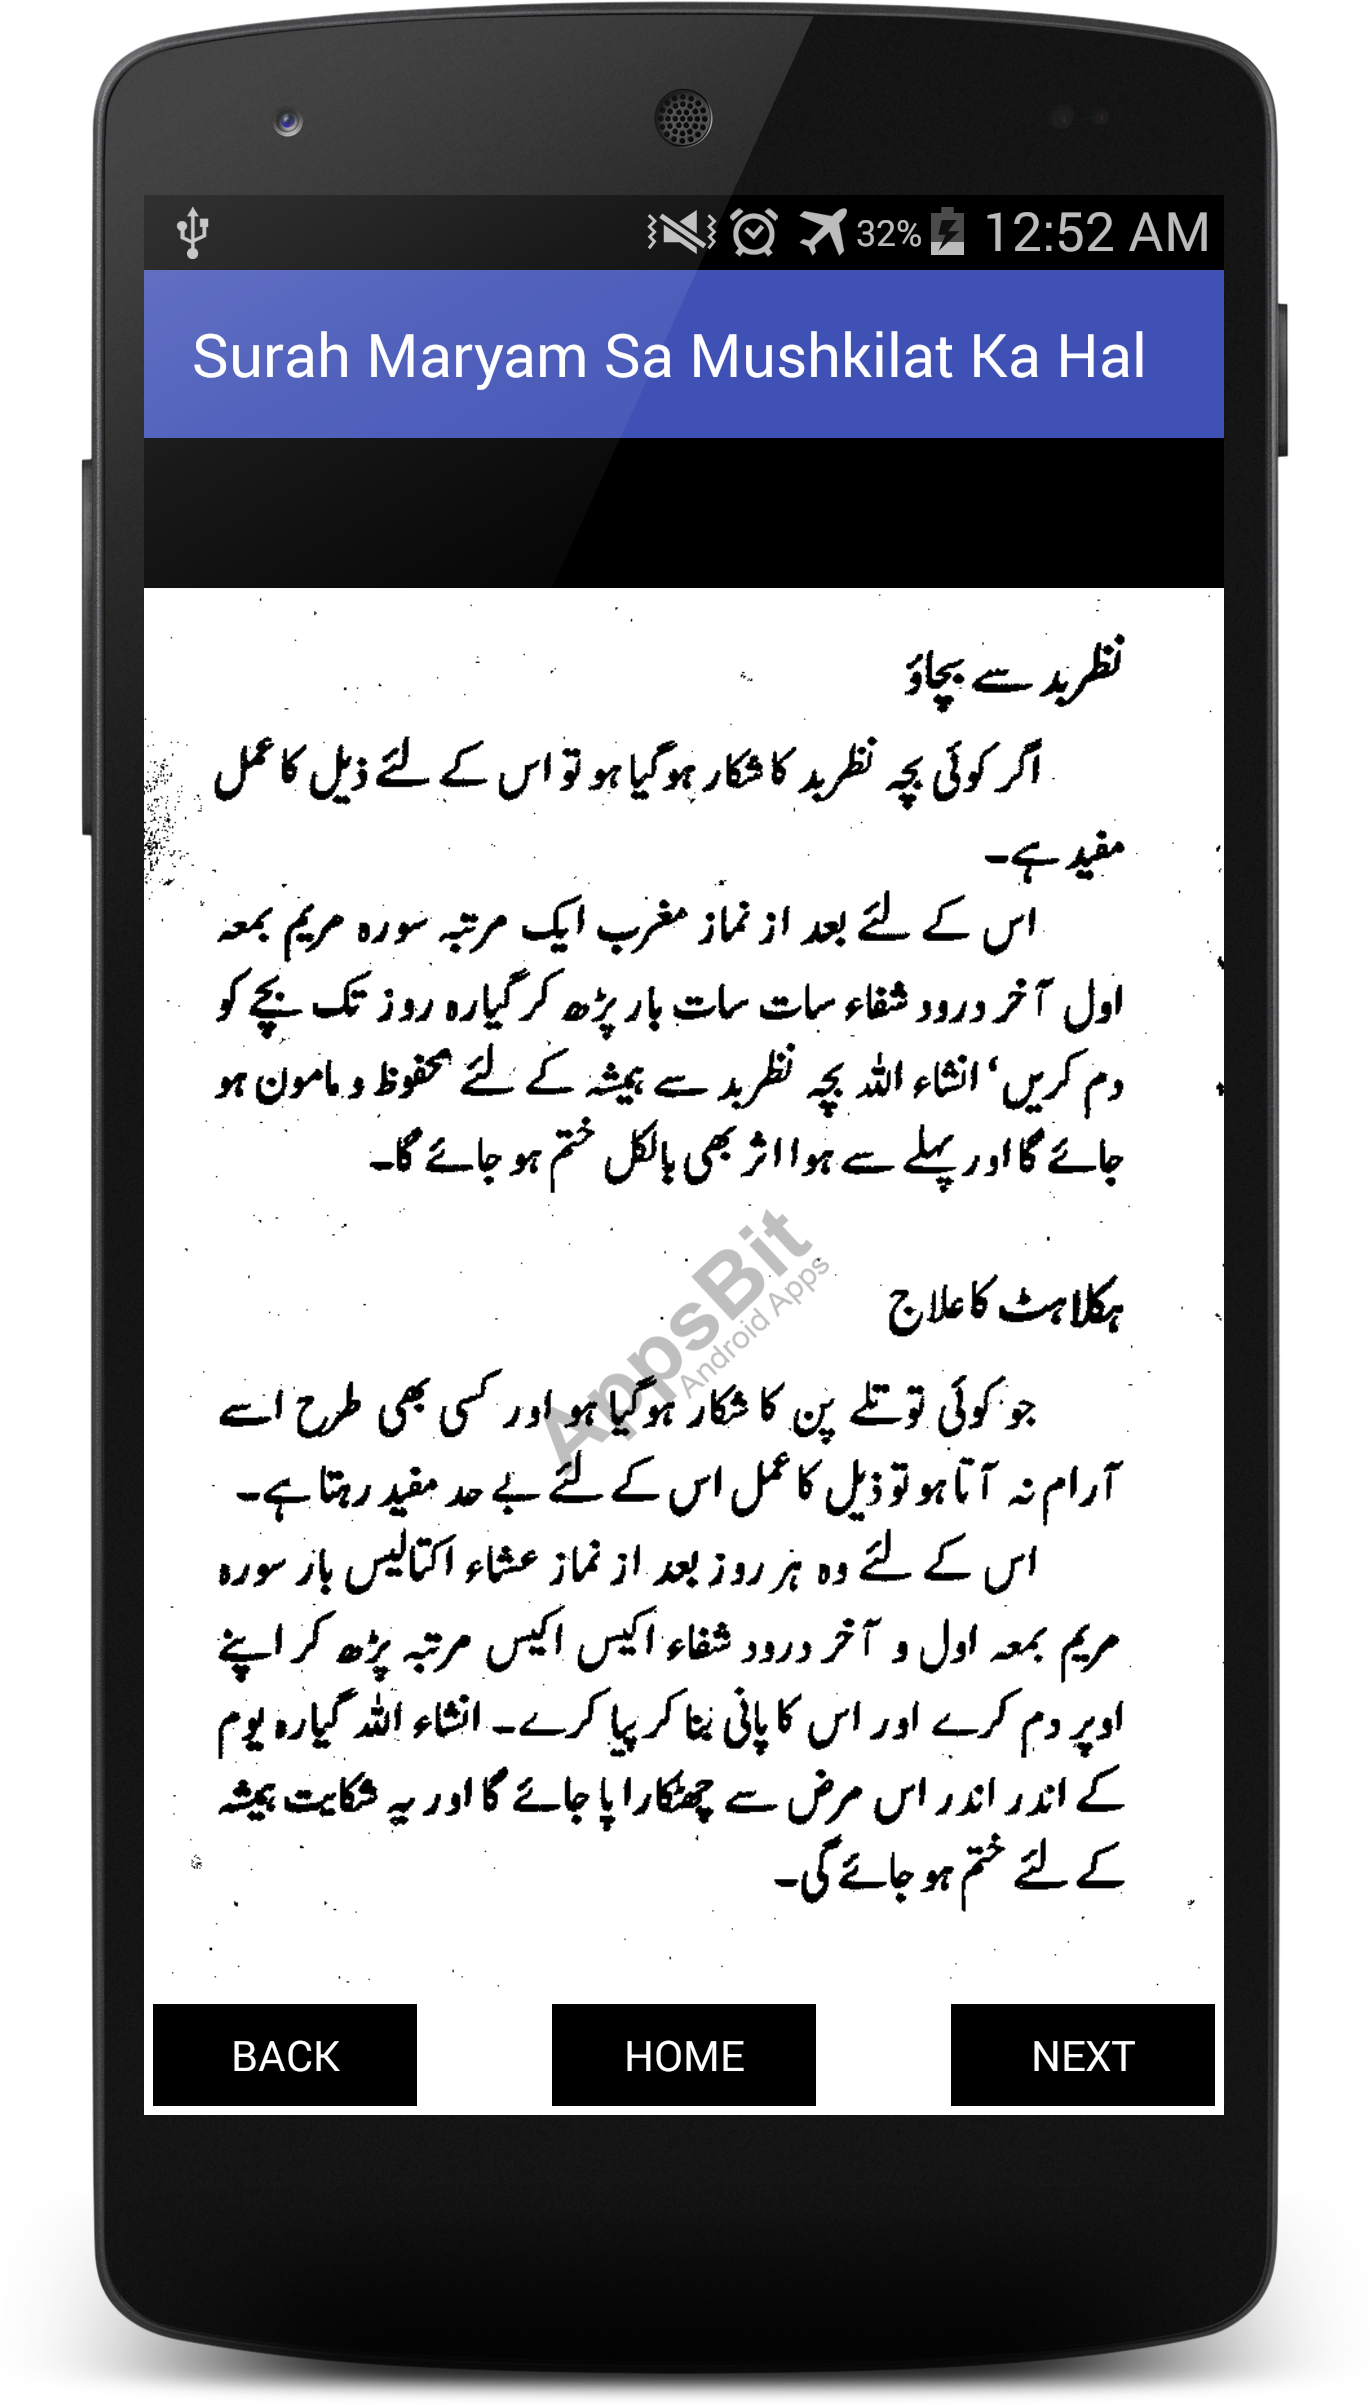 32% 12:52 AM
Surah Maryam Sa Mushkilat Ka Hal
نظربد سے بچاؤ
اگر کوئی بچہ نظربد کا شکار ہوگیا ہو تو اس کے لئے ذیل کا عمل
مفید ہے۔
اس کے لئے بعد از نماز مغرب ایک مرتبہ سورہ مریم بمعہ
اول آخر درود شفاء سات سات بار پڑھ کر گیارہ روز تک بچے کو
دم کریں، انشاء اللہ بچہ نظربد سے ہمیشہ کے لئے محفوظ و مامون ہو
جائے گا اور پہلے سے ہوا اثر بھی بالکل ختم ہو جائے گا۔
AppsBit
Android Apps
ہکلاہٹ کا علاج
جو کوئی توتلے پن کا شکار ہوگیا ہو اور کسی بھی طرح اسے
آرام نہ آتا ہو تو ذیل کا عمل اس کے لئے بے حد مفید رہتا ہے۔
اس کے لئے وہ ہر روز بعد از نماز عشاء اکتالیس بار سورہ
مریم بمعہ اول و آخر درود شفاء اکیس اکیس مرتبہ پڑھ کر اپنے
اوپر دم کرے اور اس کا پانی بنا کر پیا کرے۔ انشاء اللہ گیارہ یوم
کے اندر اندر اس مرض سے چھٹکارا پا جائے گا اور یہ شکایت ہمیشہ
کے لئے ختم ہو جائے گی۔
BACK HOME NEXT